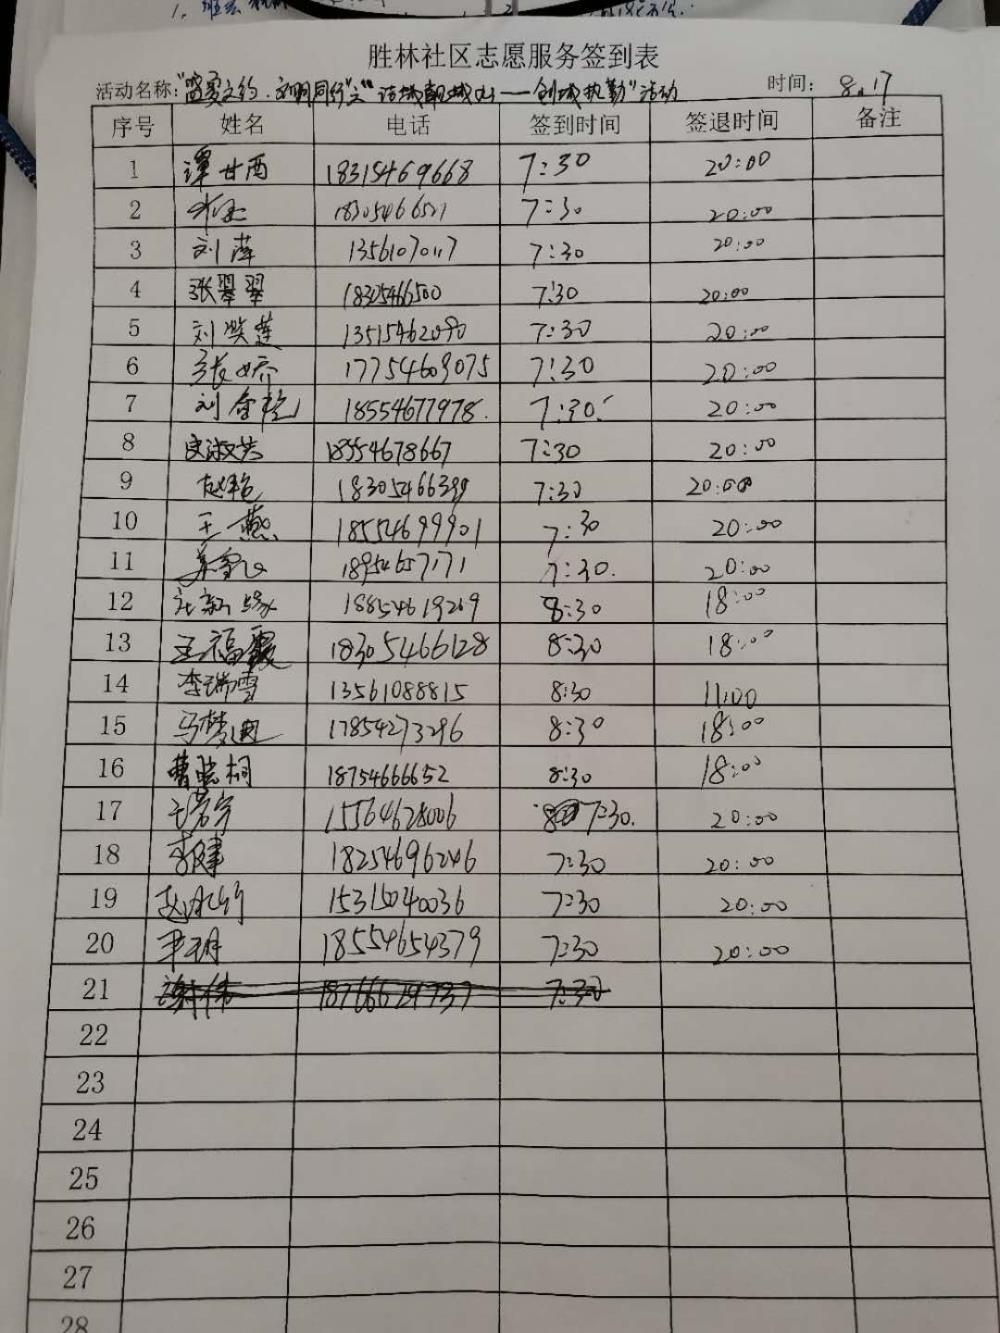 胜林社区志愿服务签到表
活动名称:"盛夏之约·文明同行"之" 创城执勤"活动 时间: 8.17
序号 姓名 电话 签到时间 签退时间 备注
1 谭甘酉 18315469668 7:30 20:00
2 18305466521 7:30 20:00
3 刘萍 13561070117 7:30 20:00
4 张翠翠 18325466500 7:30 20:00
5 刘 莲 13515462090 7:30 20:00
6 张娇 17754609075 7:30 20:00
7 刘金艳 18554677978. 7:30. 20:00
8 18554678667 7:30 20:00
9 赵艳 18305466399 7:30 20:00
10 王燕 18554699901 7:30 20:00
11 18954657171 7:30. 20:00
12 18854619269 8:30 18:00
13 王福霞 18305466128 8:30 18:00
14 李瑞雪 13561088815 8:30 11:00
15 马梦迪 17854273296 8:30 18:00
16 曹晓桐 18754666652 8:30 18:00
17 王芳宇 15564628006 7:30. 20:00
18 李健 18254696246 7:30 20:00
19 赵永行 15315040036 7:30 20:00
20 尹玥 18554654379 7:30 20:00
21 谢伟 7:30
22
23
24
25
26
27
28